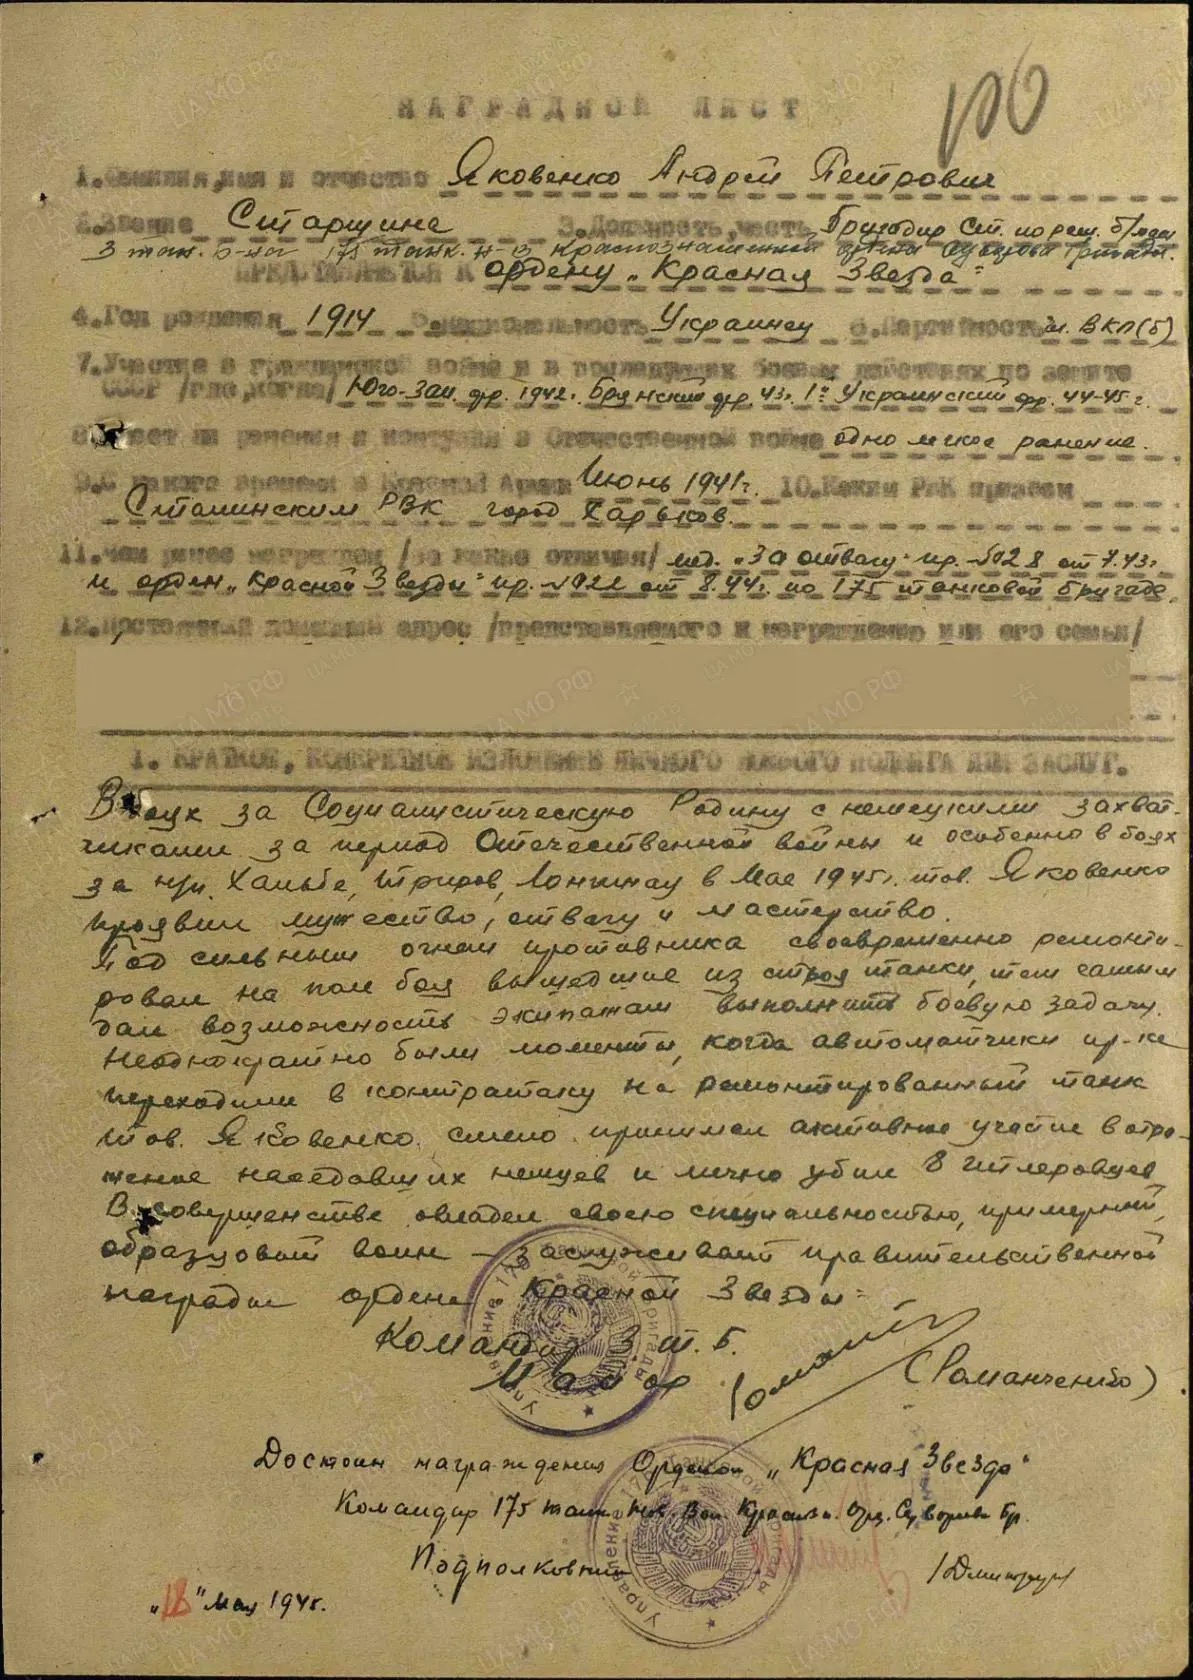 100
НАГРАДНОЙ ЛИСТ
1.Фамилия,имя и отчество Яковенко Андрей Петрович
2.Звание Старшина 3.Должность,часть Бригадир ст. по рем. б/маш
3 тан. б-на 175 танк. Краснознаменной ордена Суворова бригады.
ПРЕДСТАВЛЯЕТСЯ К ордену „Красная Звезда"
4.Год рождения 1914 5.Национальность Украинец 6.Партийность чл. ВКП(б)
7.Участие в гражданской войне и в последующих боевых действиях по защите
СССР /где,когда/ Юго-Зап. фр. 1942г. Брянский фр. 43г. 1й Украинский фр. 44-45г.
8.Имеет ли ранения и контузии в Отечественной войне одно легкое ранение.
9.С какого времени в Красной Армии Июнь 1941г. 10.Каким РВК призван
Сталинским РВК город Харьков.
11.Чем ранее награжден /за какие отличия/ мед. „За отвагу" пр. №028 от 7.43г.
и орден „Красной Звезды" пр. №022 от 8.44г. по 175 танковой бригаде
12.Постоянный домашний адрес /представляемого к награждению или его семьи/
1. КРАТКОЕ, КОНКРЕТНОЕ ИЗЛОЖЕНИЕ ЛИЧНОГО БОЕВОГО ПОДВИГА ИЛИ ЗАСЛУГ.
В боях за Социалистическую Родину с немецкими захват-
чиками за период Отечественной войны и особенно в боях
за н/п. Хальбе, в Мае 1945г. тов. Яковенко
проявил мужество, отвагу и мастерство.
Под сильным огнем противника своевременно ремонти-
ровал на поле боя вышедшие из строя танки, тем самым
дал возможность экипажам выполнить боевую задачу.
Неоднократно были моменты, когда автоматчики пр-ка
переходили в контратаку на ремонтированный танк
тов. Яковенко смело принимал активное участие в отра-
жение наседавших немцев и лично убил 8 гитлеровцев
В совершенстве овладел своею специальностью, примерный,
образцовый воин – заслуживает правительственной
награды ордена „Красной Звезды"
Командир 3 т. б.
Майор (Романченко)
Достоин награждения Орденом „Красная Звезда"
Командир 175 танк. Кразн. Орд. Суворова бр.
Подполковник
„18" мая 1945г.